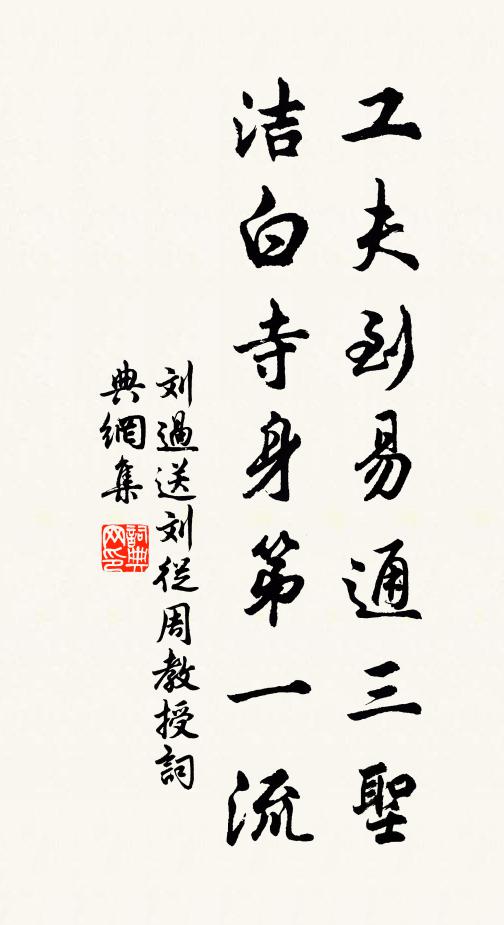 工夫到易通三聖
洁白寺身第一流
刘過送刘從周教授詞
典網集
詞典网印